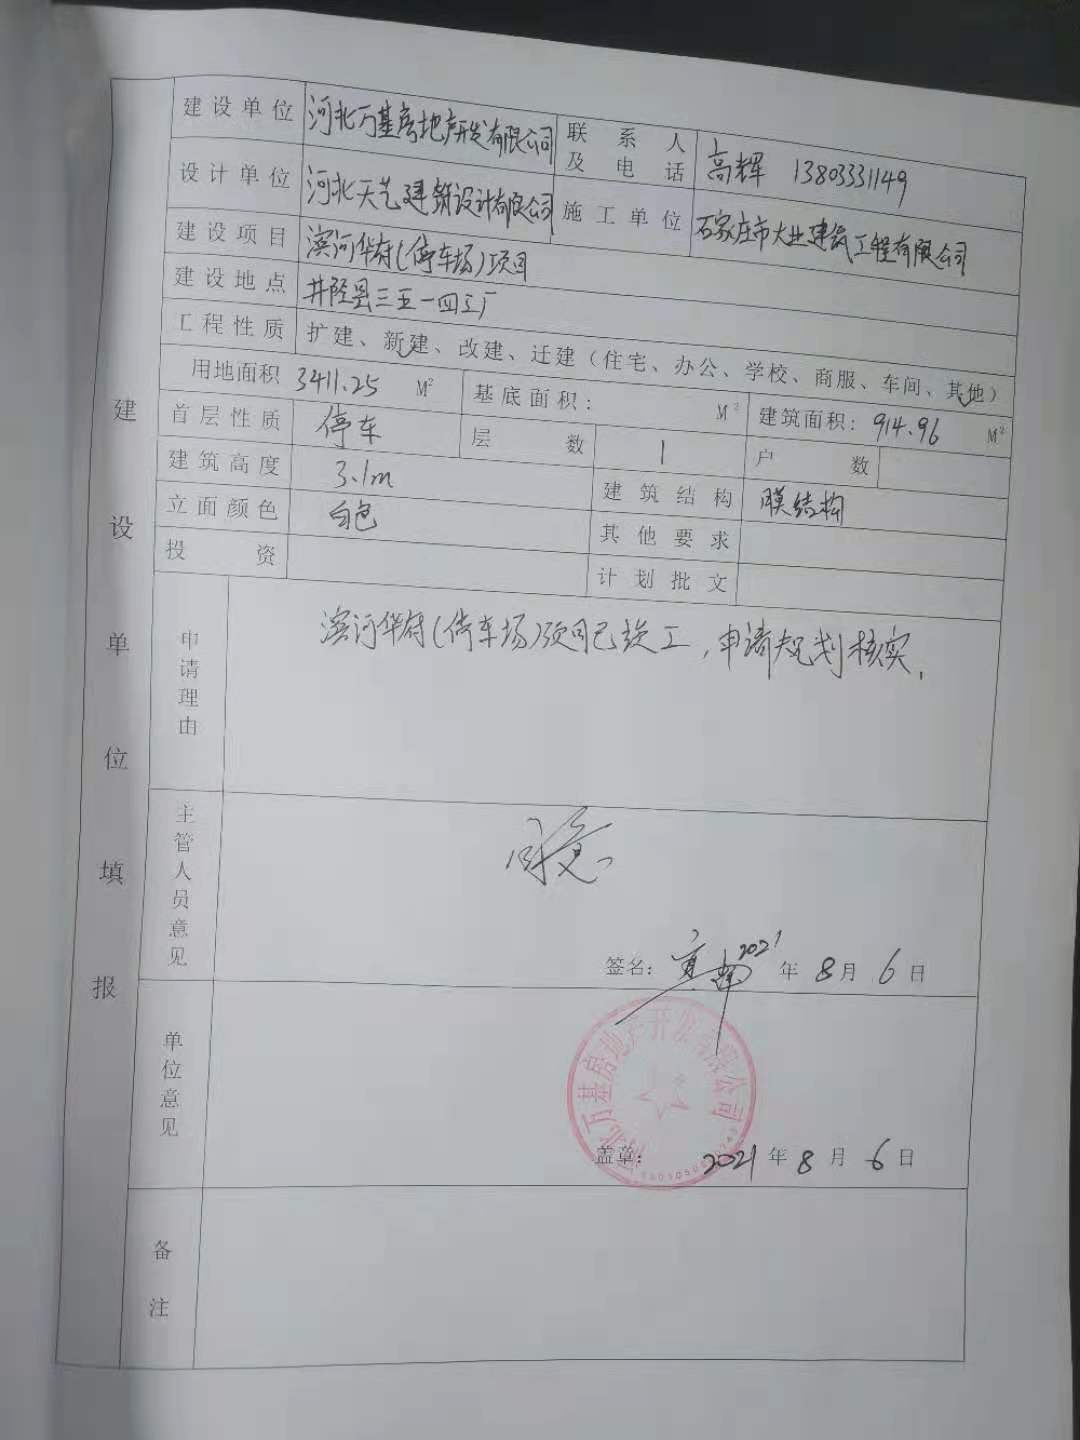 建设单位 河北万基房地产开发有限公司 联系人及电话 高辉 13803331149
设计单位 河北天艺建筑设计有限公司 施工单位 石家庄市大业建筑工程有限公司
建设项目 滨河华府(停车场)项目
建设地点 井陉县三五一四工厂
工程性质 扩建、新建、改建、迁建（住宅、办公、学校、商服、车间、其他）
用地面积 3411.25 M² 基底面积： M² 建筑面积：914.96 M²
首层性质 停车 层数 1 户数
建筑高度 3.1m 建筑结构 膜结构
立面颜色 白色 其他要求
投资 计划批文
建设单位填报
申请理由
滨河华府(停车场)项目已竣工，申请规划核实，
主管人员意见
同意
签名： 2021年8月6日
单位意见
河北万基房地产开发有限公司
盖章： 2021年8月6日
备注